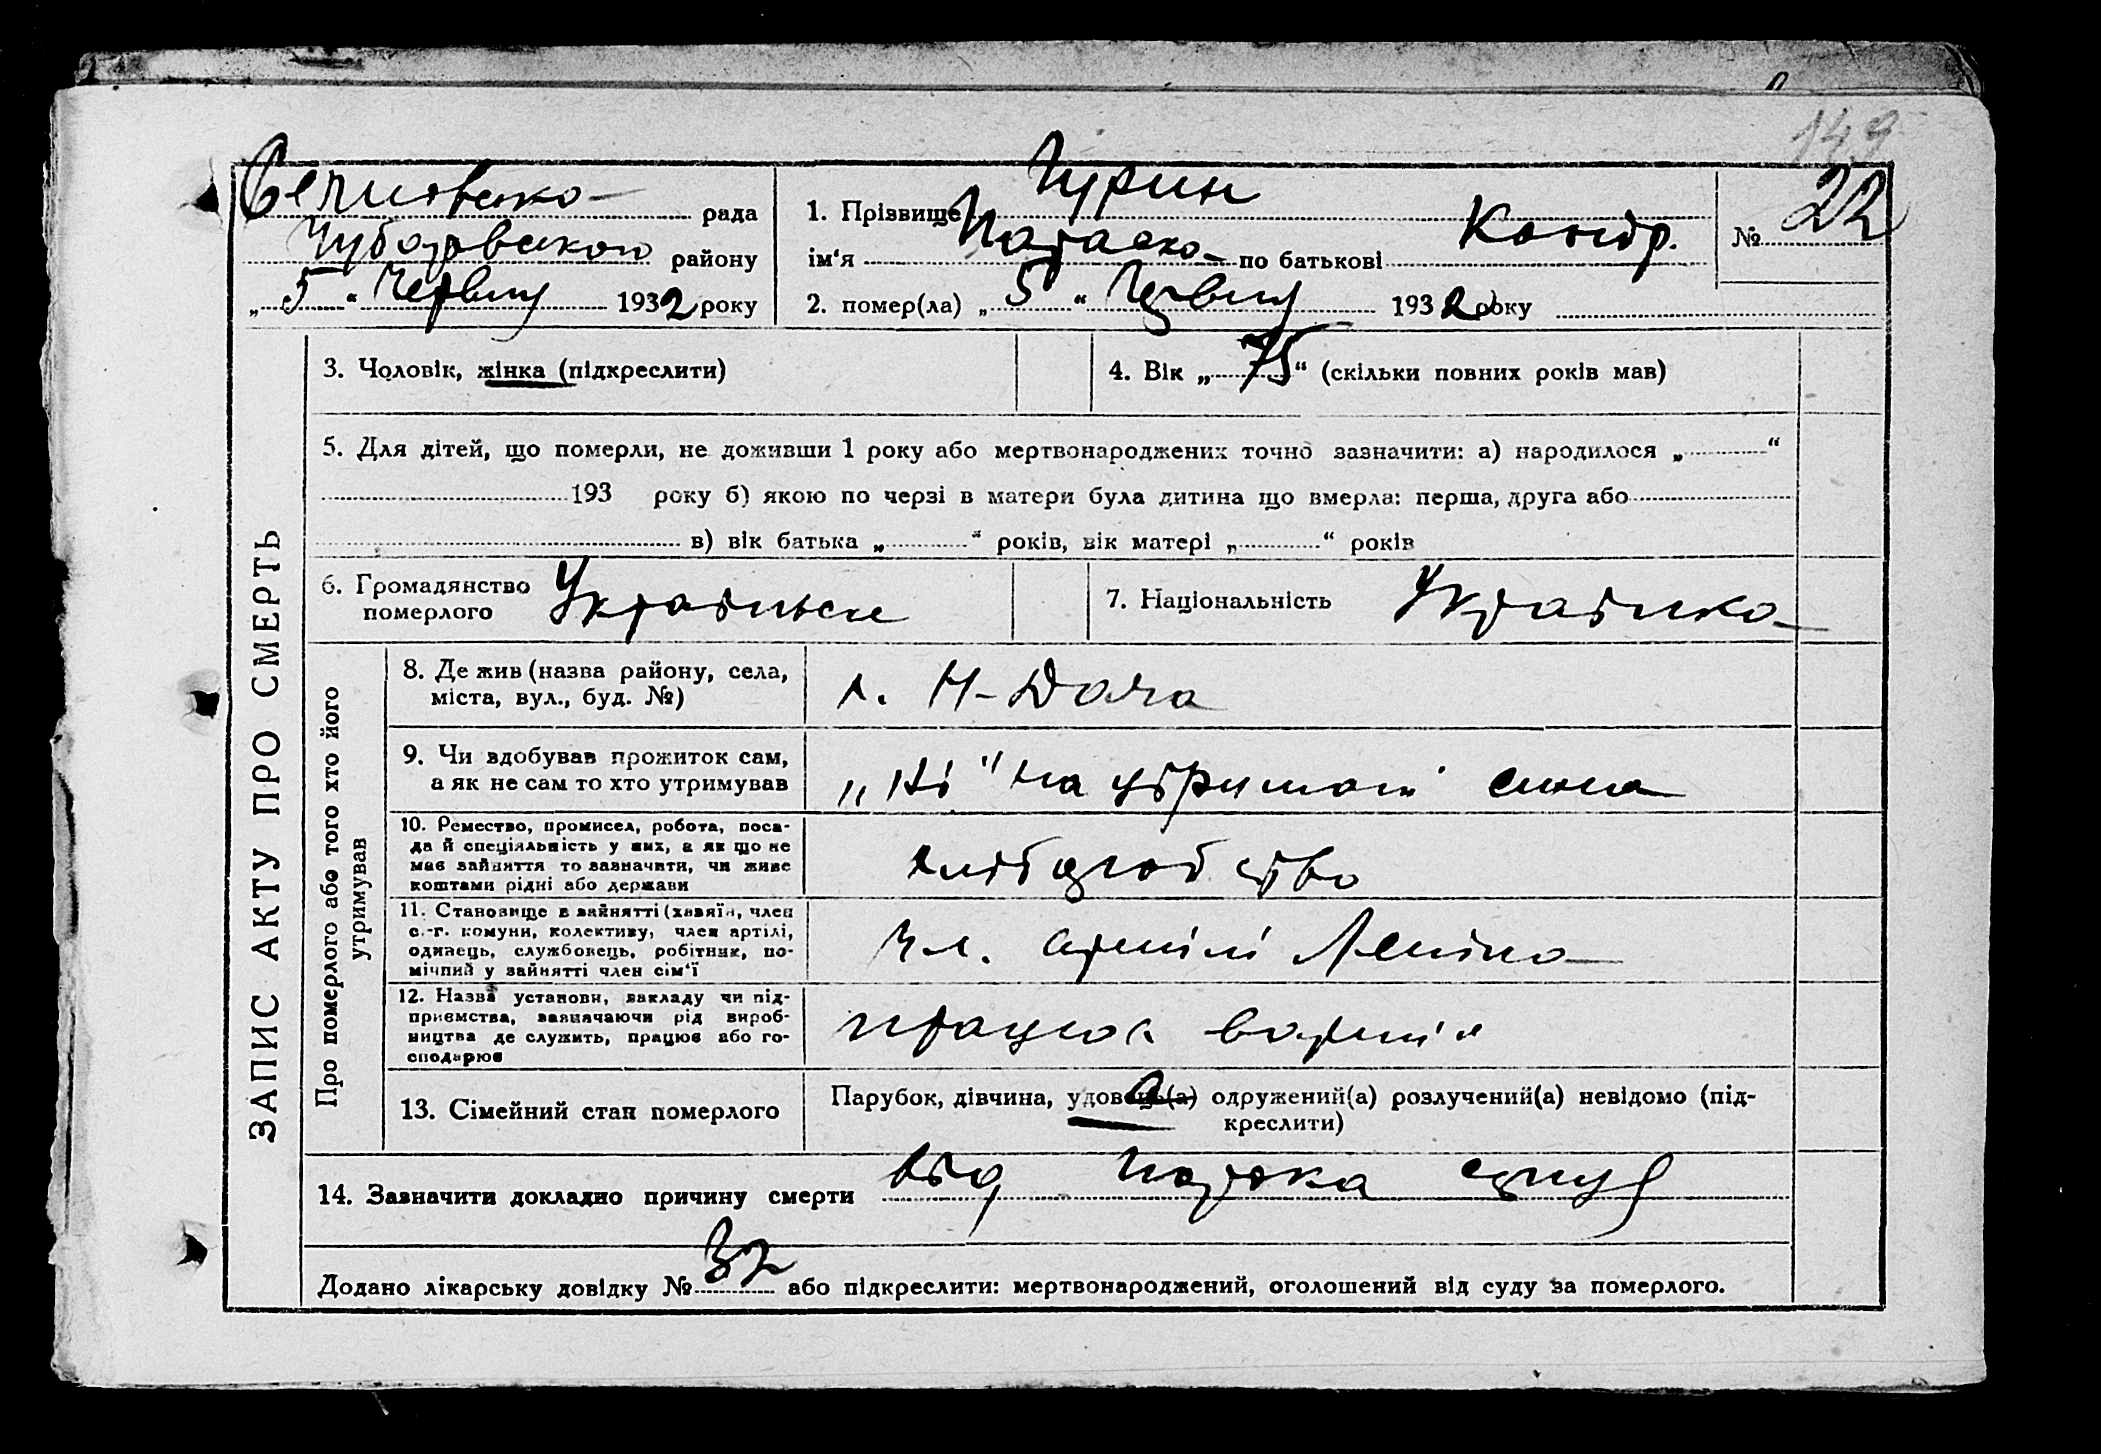 149
Сечиовсько- рада
Чубарівського району
„5“ Червня 1932 року
1. Прізвище Гурин
ім‘я Параска по батькові Кондр.
2. помер(ла) „5“ Червня 1932 року
№ 22
ЗАПИС АКТУ ПРО СМЕРТЬ
3. Чоловік, жінка (підкреслити)
4. Вік „75“ (скільки повних років мав)
5. Для дітей, що померли, не доживши 1 року або мертвонароджених точно зазначити: а) народилося „ “
193 року б) якою по черзі в матери була дитина що вмерла: перша, друга або
в) вік батька „ “ років, вік матері „ “ років
6. Громадянство
померлого Українське
7. Національність Українка
Про померлого або того хто його
утримував
8. Де жив (назва району, села,
міста, вул., буд. №)
х. Н-Дача
9. Чи здобував прожиток сам,
а як не сам то хто утримував
„Ні“ на утримані сина
10. Ремество, промисел, робота, поса-
да й спеціяльність у них, а як що не
мав зайняття то зазначити, чи живе
коштами рідні або держави
хліборобство
11. Становище в зайнятті (хазяїн, член
с.-г. комуни, колективу, член артілі,
одинець, службовець, робітник, по-
мічний у зайнятті член сім‘ї
чл. артілі Леніна
12. Назва установи, закладу чи під-
приємства, зазначаючи рід вироб-
ництва де служить, працює або го-
сподарює
працює в артілі
13. Сімейний стан померлого
Парубок, дівчина, удовець(а) одружений(а) розлучений(а) невідомо (під-
креслити)
14. Зазначити докладно причину смерти від порока серця
Додано лікарську довідку № 32 або підкреслити: мертвонароджений, оголошений від суду за померлого.